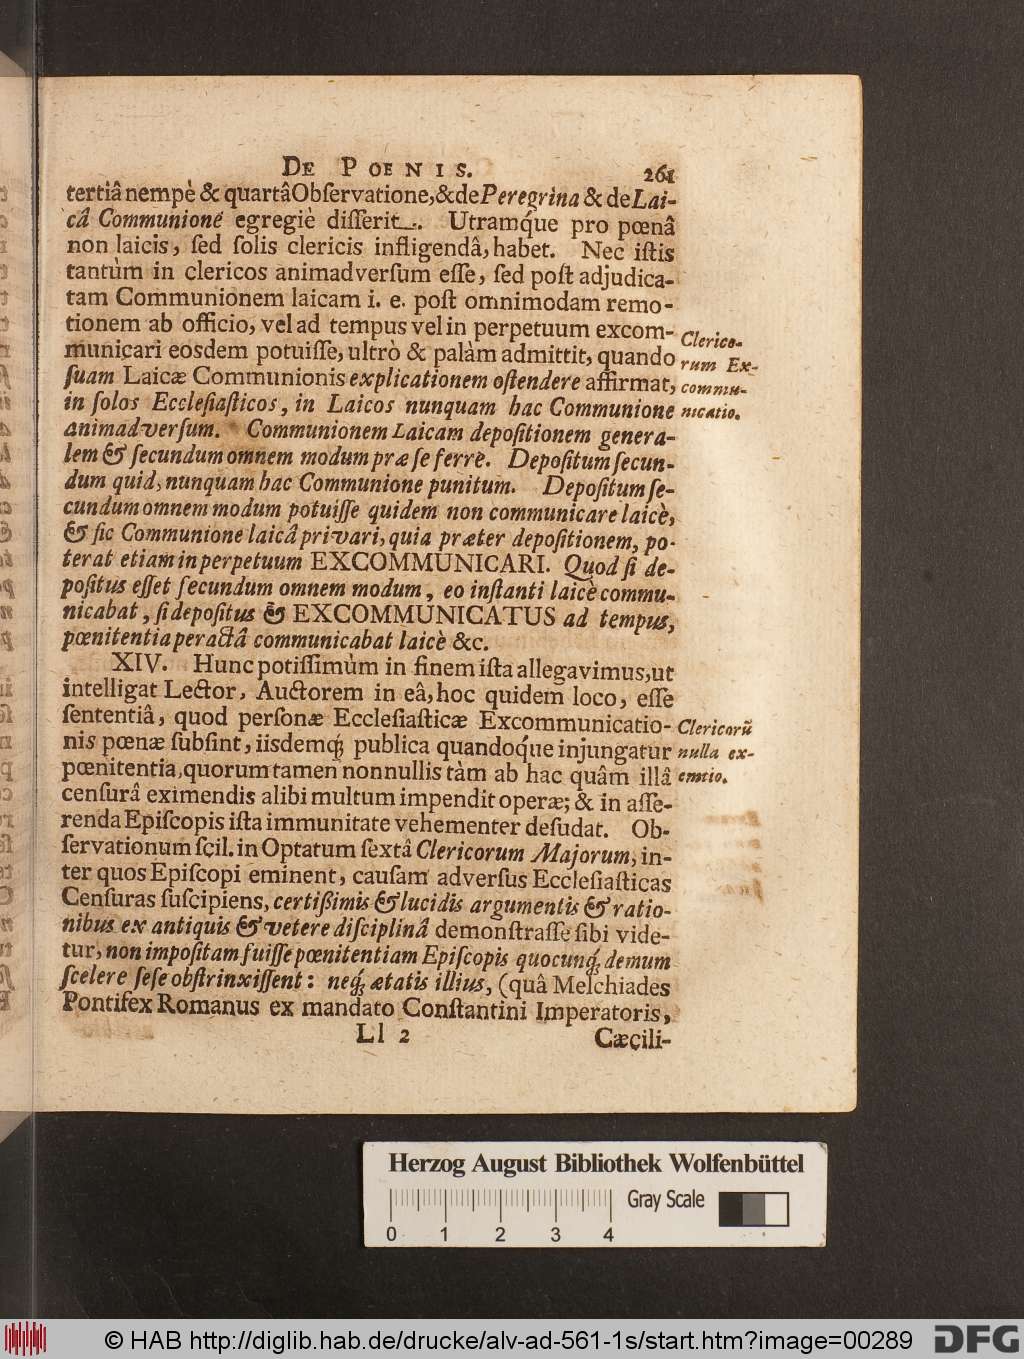 DE POENIS.
261
tertiâ nempè & quartâ Obſervatione, & de Peregrina & de Lai-
câ Communione egregiè diſſerit. Utramq́ue pro pœnâ
non laicis, ſed ſolis clericis infligendâ, habet. Nec iſtis
tantùm in clericos animadverſum eſſe, ſed poſt adjudica-
tam Communionem laicam i. e. poſt omnimodam remo-
tionem ab officio, vel ad tempus vel in perpetuum excom-
municari eosdem potuiſſe, ultrò & palàm admittit, quando
ſuam Laicæ Communionis explicationem oſtendere affirmat,
in ſolos Eccleſiaſticos, in Laicos nunquam hac Communione
animadverſum. Communionem Laicam depoſitionem genera-
lem & ſecundum omnem modum præ ſe ferre. Depoſitum ſecun-
dum quid, nunquam hac Communione punitum. Depoſitum ſe-
cundum omnem modum potuiſſe quidem non communicare laicè,
& ſic Communione laicâ privari, quia præter depoſitionem, po-
terat etiam in perpetuum EXCOMMUNICARI. Quod ſi de-
poſitus eſſet ſecundum omnem modum, eo inſtanti laicè commu-
nicabat, ſi depoſitus & EXCOMMUNICATUS ad tempus,
pœnitentia peractâ communicabat laicè &c.
Clerico-
rum Ex-
commu-
nicatio.
XIV. Hunc potiſſimùm in finem iſta allegavimus, ut
intelligat Lector, Auctorem in eâ, hoc quidem loco, eſſe
ſententiâ, quod perſonæ Eccleſiaſticæ Excommunicatio-
nis pœnæ ſubſint, iisdemq́; publica quandoq́ue injungatur
pœnitentia, quorum tamen nonnullis tàm ab hac quâm illâ
cenſurâ eximendis alibi multum impendit operæ; & in aſſe-
renda Epiſcopis iſta immunitate vehementer deſudat. Ob-
ſervationum ſcil. in Optatum ſextâ Clericorum Majorum, in-
ter quos Epiſcopi eminent, cauſam adverſus Eccleſiaſticas
Cenſuras ſuſcipiens, certißimis & lucidis argumentis & ratio-
nibus ex antiquis & vetere diſciplinâ demonſtraſſe ſibi vide-
tur, non impoſitam fuiſſe pœnitentiam Epiſcopis quocunq́; demum
ſcelere ſeſe obſtrinxiſſent: neq́; ætatis illius, (quâ Melchiades
Pontifex Romanus ex mandato Conſtantini Imperatoris,
Clericorũ
nulla ex-
emtio.
Ll 2
Cæcili-
Herzog August Bibliothek Wolfenbüttel
Gray Scale
0 1 2 3 4
© HAB http://diglib.hab.de/drucke/alv-ad-561-1s/start.htm?image=00289
DFG